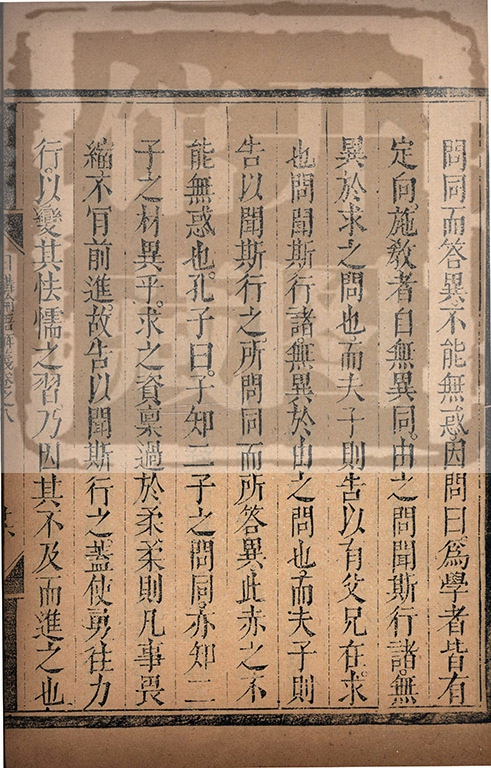 問同而答異不能無惑因問曰為學者皆有
定向施敎者自無異同由之問聞斯行諸無
異於求之問也而夫子則告以有父兄在求
也問聞斯行諸無異於由之問也而夫子則
告以聞斯行之所問同而所答異此赤之不
能無惑也孔子曰予知二子之問同亦知二
子之材異乎求之資稟過於柔柔則凡事畏
縮不肎前進故告以聞斯行之蓋使勇往力
行以變其怯懦之習乃因其不及而進之也